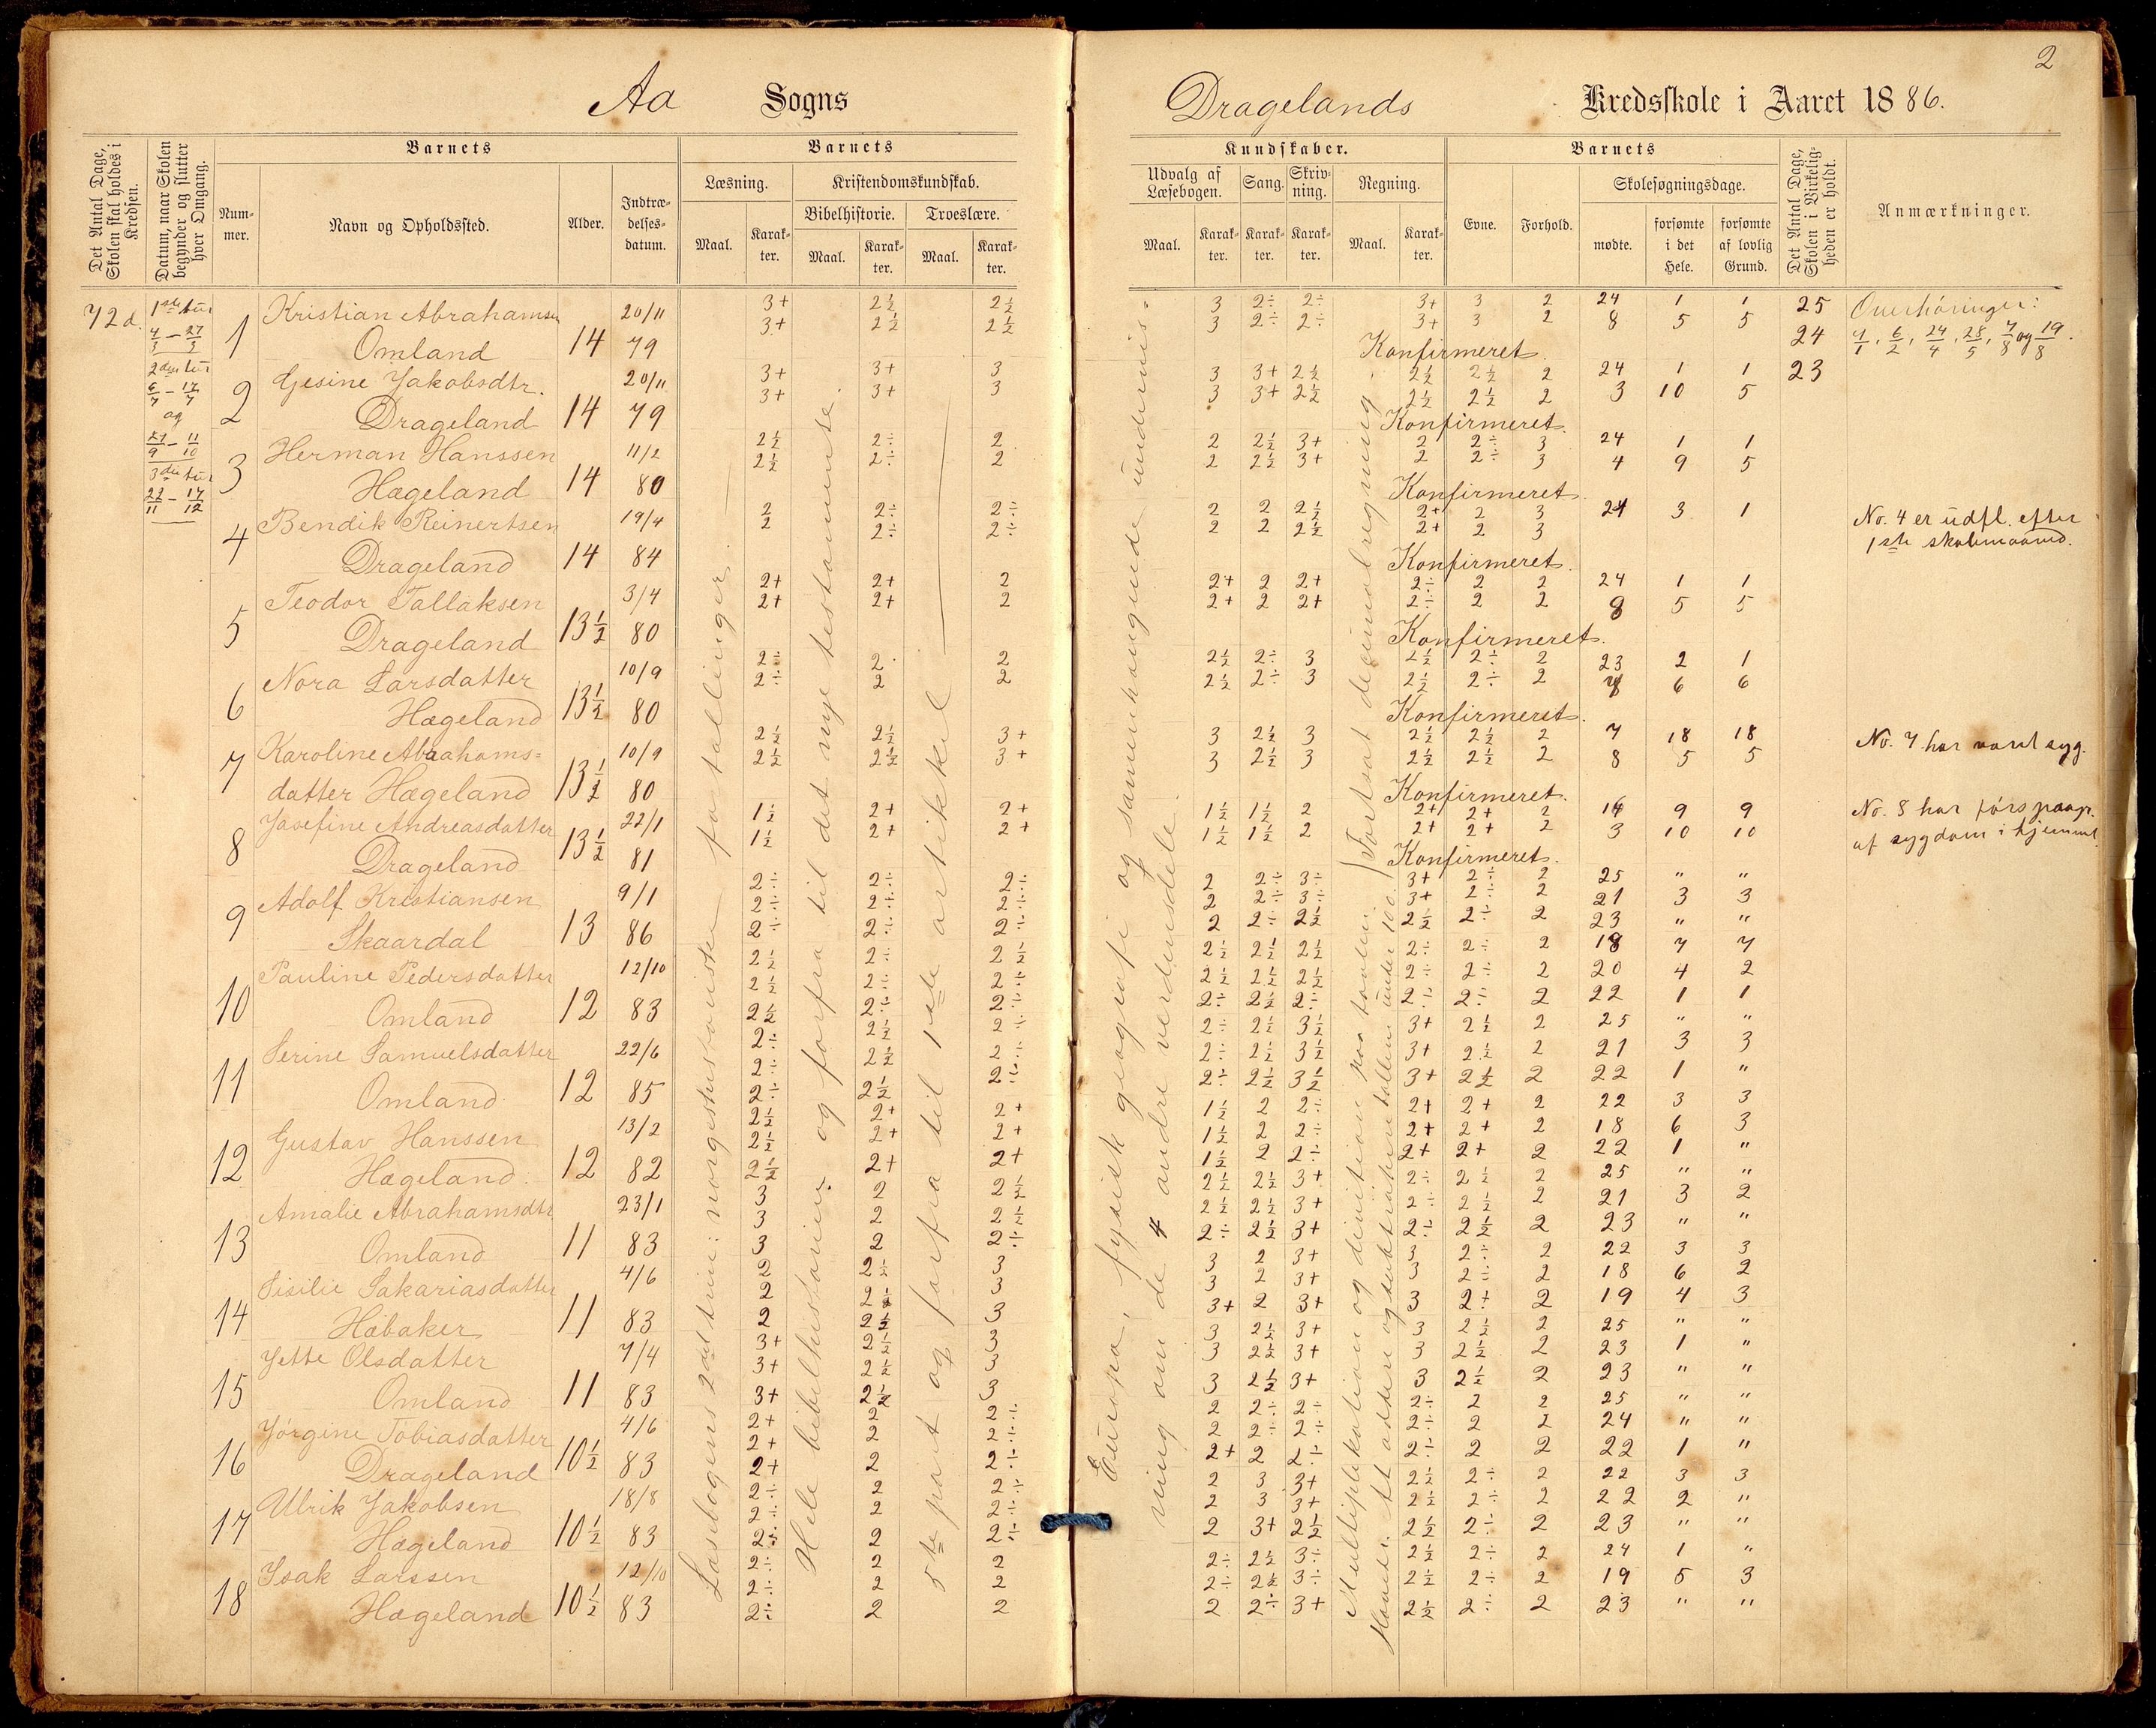 2
Aa Sogns
Dragelands Kredsskole i Aaret 1886.
Det Antal Dage, Skolen skal holdes i Kredsen.
Datum, naar Skolen begynder og slutter hver Omgang.
Barnets
Num-mer.
Navn og Opholdssted.
Alder.
Indtræ-delses-datum.
Barnets
Læsning.
Maal.
Karak-ter.
Kristendomskundskab.
Bibelhistorie.
Maal.
Karak-ter.
Troeslære.
Maal.
Karak-ter.
Kundskaber.
Udvalg af Læsebogen.
Maal.
Karak-ter.
Sang.
Karak-ter.
Skriv-ning.
Karak-ter.
Regning.
Maal.
Karak-ter.
Barnets
Evne.
Forhold.
Skolesøgningsdage.
mødte.
forsømte i det Hele.
forsømte af lovlig Grund.
Det Antal Dage, Skolen i Virkelig-heden er holdt.
Anmærkninger.
72 d.
1ste tur
4/3 – 27/3
2den tur
6/7 – 17/7
og
27/9 – 11/10
3die tur
22/11 – 17/12
1 Kristian Abrahamsen 20/11 3+ 2½ 2½ 3 2÷ 2÷ 3+ 3 2 24 1 1 25 Overhøringer:
3+ 2½ 2½ 3 2÷ 2÷ 3+ 3 2 8 5 5
Omland 14 79 Konfirmeret. 24 7/1, 6/2, 24/4, 28/5, 7/8 og 19/8.
2 Gesine Jakobsdtr. 20/11 3+ 3+ 3 3 3+ 2½ 2½ 2½ 2 24 1 1 23
3+ 3+ 3 3 3+ 2½ 2½ 2½ 2 3 10 5
Drageland 14 79 Konfirmeret.
3 Herman Hanssen 11/2 2½ 2÷ 2 2 2½ 3+ 2 2÷ 3 24 1 1
2½ 2÷ 2 2 2½ 3+ 2 2÷ 3 4 9 5
Hægeland 14 80 Konfirmeret.
4 Bendik Reinertsen 19/4 2 2÷ 2÷ 2 2 2½ 2+ 2 3 24 3 1 No. 4 er udfl. efter
2 2÷ 2÷ 2 2 2½ 2+ 2 3 1ste skolemaaned.
Drageland 14 84 Konfirmeret.
5 Teodor Tallaksen 3/4 2+ 2+ 2 2+ 2 2+ 2÷ 2 2 24 1 1
2+ 2+ 2 2+ 2 2+ 2÷ 2 2 8 5 5
Drageland 13½ 80 Konfirmeret.
6 Nora Larsdatter 10/9 2÷ 2 2 2½ 2÷ 3 2½ 2÷ 2 23 2 1
2÷ 2 2 2½ 2÷ 3 2½ 2÷ 2 7 6 6
Hægeland 13½ 80 Konfirmeret.
7 Karoline Abrahams= 10/9 2½ 2½ 3+ 3 2½ 3 2½ 2½ 2 7 18 18 No. 7 har været syg.
2½ 2½ 3+ 3 2½ 3 2½ 2½ 2 8 5 5
datter Hægeland 13½ 80 Konfirmeret.
8 Josefine Andreasdatter 22/1 1½ 2+ 2+ 1½ 1½ 2 2+ 2+ 2 14 9 9 No. 8 har
1½ 2+ 2+ 1½ 1½ 2 2+ 2+ 2 3 10 10 af sygdom i hjemmet.
Drageland 13½ 81 Konfirmeret.
9 Adolf Kristiansen 9/1 2÷ 2÷ 2÷ 2 2÷ 3÷ 3+ 2÷ 2 25 " "
2÷ 2÷ 2÷ 2 2÷ 3÷ 3+ 2÷ 2 21 3 3
Skaardal 13 86 2÷ 2÷ 2÷ 2 2÷ 2½ 2½ 2÷ 2 23 " "
10 Pauline Pedersdatter 12/10 2½ 2÷ 2½ 2½ 2½ 2½ 2÷ 2÷ 2 18 7 7
2½ 2÷ 2÷ 2½ 2½ 2½ 2÷ 2÷ 2 20 4 2
Omland 12 83 2½ 2÷ 2÷ 2÷ 2½ 2÷ 2÷ 2÷ 2 22 1 1
11 Serine Samuelsdatter 22/6 2÷ 2½ 2÷ 2÷ 2½ 3½ 3+ 2½ 2 25 " "
2÷ 2½ 2÷ 2÷ 2½ 3½ 3+ 2½ 2 21 3 3
Omland 12 85 2÷ 2½ 2÷ 2÷ 2½ 3½ 3+ 2½ 2 22 1 "
12 Gustav Hanssen 13/2 2½ 2+ 2+ 1½ 2 2÷ 2+ 2+ 2 22 3 3
2½ 2+ 2+ 1½ 2 2÷ 2+ 2+ 2 18 6 3
Hægeland. 12 82 2½ 2+ 2+ 1½ 2 2÷ 2+ 2+ 2 22 1 "
13 Amalie Abrahamsdtr 23/1 3 2 2½ 2½ 2½ 3+ 2÷ 2½ 2 25 " "
3 2 2½ 2½ 2½ 3+ 2÷ 2½ 2 21 3 2
Omland 11 83 3 2 2÷ 2÷ 2½ 3+ 2÷ 2½ 2 23 " "
14 Sisilie Sakariasdatter 4/6 2 2½ 3 3 2 3+ 3 2÷ 2 22 3 3
2 2½ 3 3 2 3+ 3 2÷ 2 18 6 2
Håbaker 11 83 2 2½ 3 3+ 2 3+ 3 2+ 2 19 4 3
15 Jette Olsdatter 7/4 3+ 2½ 3 3 2½ 3+ 3 2½ 2 25 " "
3+ 2½ 3 3 2½ 3+ 3 2½ 2 23 1 "
Omland 11 83 3+ 2½ 3 3 2½ 3+ 3 2½ 2 23 " "
16 Jørgine Tobiasdatter 4/6 2+ 2 2÷ 2 2÷ 2÷ 2÷ 2 2 25 " "
2+ 2 2÷ 2 2÷ 2÷ 2÷ 2 2 24 " "
Drageland 10½ 83 2+ 2 2÷ 2+ 2 2÷ 2÷ 2 2 22 1 "
17 Ulrik Jakobsen 18/8 2÷ 2 2÷ 2 3 3+ 2½ 2÷ 2 22 3 3
2÷ 2 2÷ 2 3 3+ 2½ 2÷ 2 22 2 "
Hægeland 10½ 83 2÷ 2 2÷ 2 3+ 2½ 2½ 2÷ 2 23 " "
18 Isak Larssen 12/10 2÷ 2 2 2÷ 2½ 3÷ 2½ 2÷ 2 24 1 "
2÷ 2 2 2÷ 2½ 3÷ 2½ 2÷ 2 19 5 3
Hægeland 10½ 83 2÷ 2 2 2 2÷ 3+ 2½ 2÷ 2 23 " "
Læsebogens 2det trin: norgeshistoriske fortællinger.
Hele bibelhistorien og forfra til det nye testamente.
5te part og forfra til 1ste artikkel
Europa, fysisk geografi og samenhængende undervis=
ning om de 4 andre verdensdele.
Multiplikation og division paa tavlen. / Fortsat decimalregning.
Hovedr. At addere og subtrahere tallene under 100.